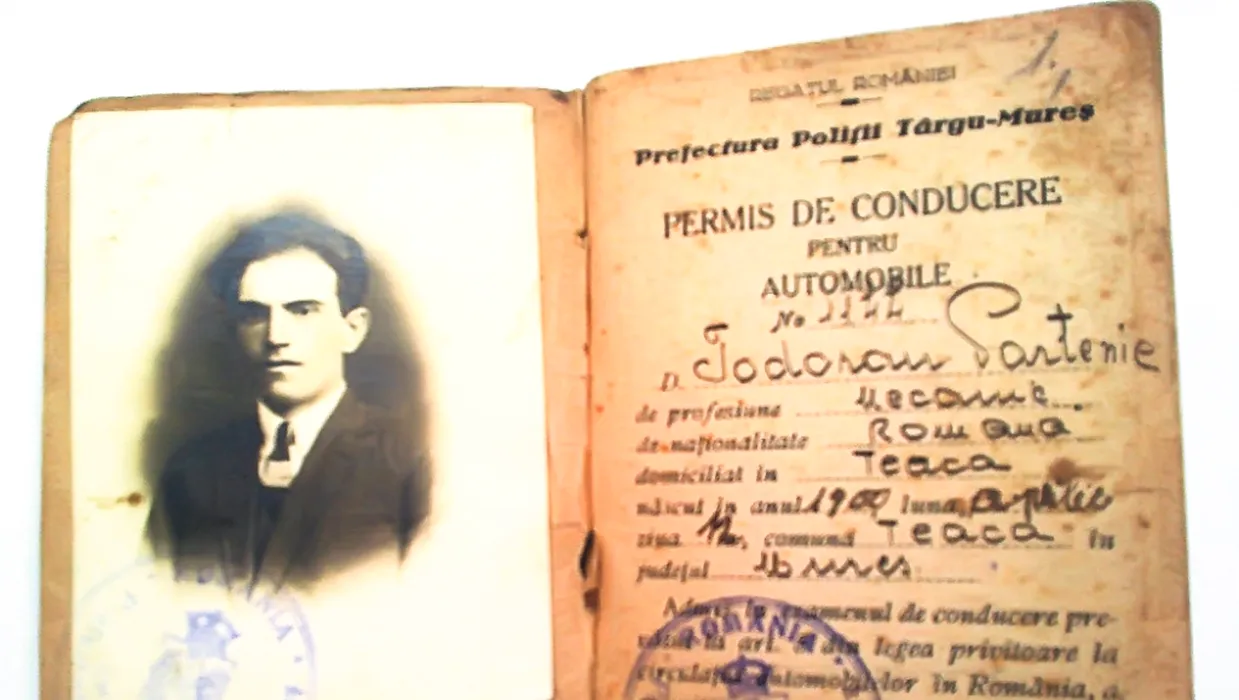 REGATUL ROMÂNIEI
Prefectura Poliții Târgu-Mureș
PERMIS DE CONDUCERE
PENTRU
AUTOMOBILE
No
D. Todoran Partenie
de profesiune Mecanic.
de naționalitate Romana
domiciliat în Teaca
născut în anul 1900 luna aprilie
ziua 12, comuna Teaca în
județul Mureș
Admis la examenul de conducere pre-
văzut la art. din legea privitoare la
circulația automobilelor în România, a
ROMÂNIA